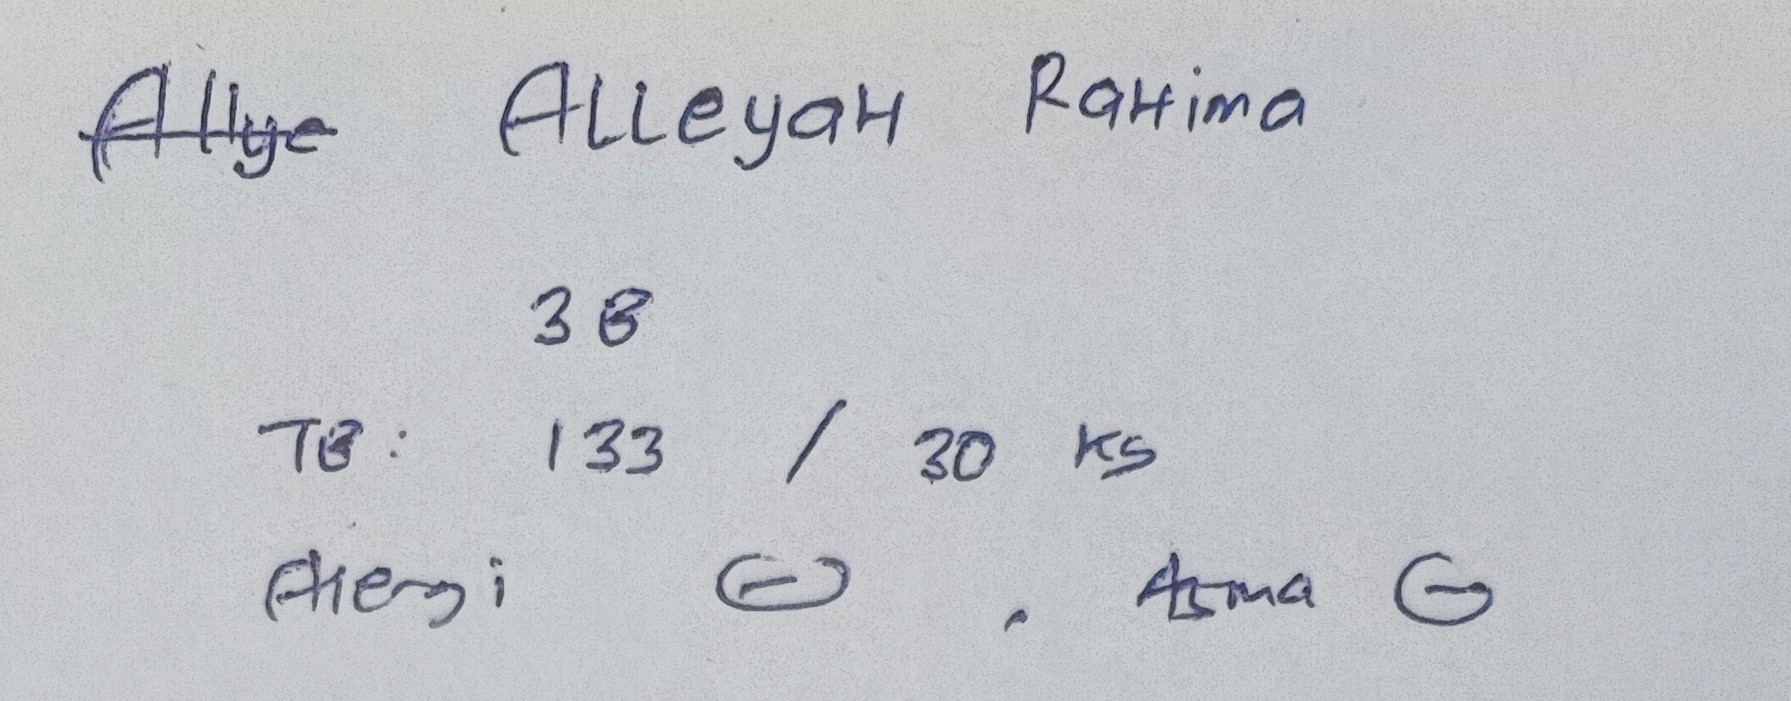 Allye ALLeyaH RaHima
3B
TB: 133 / 30 KG
Alergi ⊖ , Asma ⊖